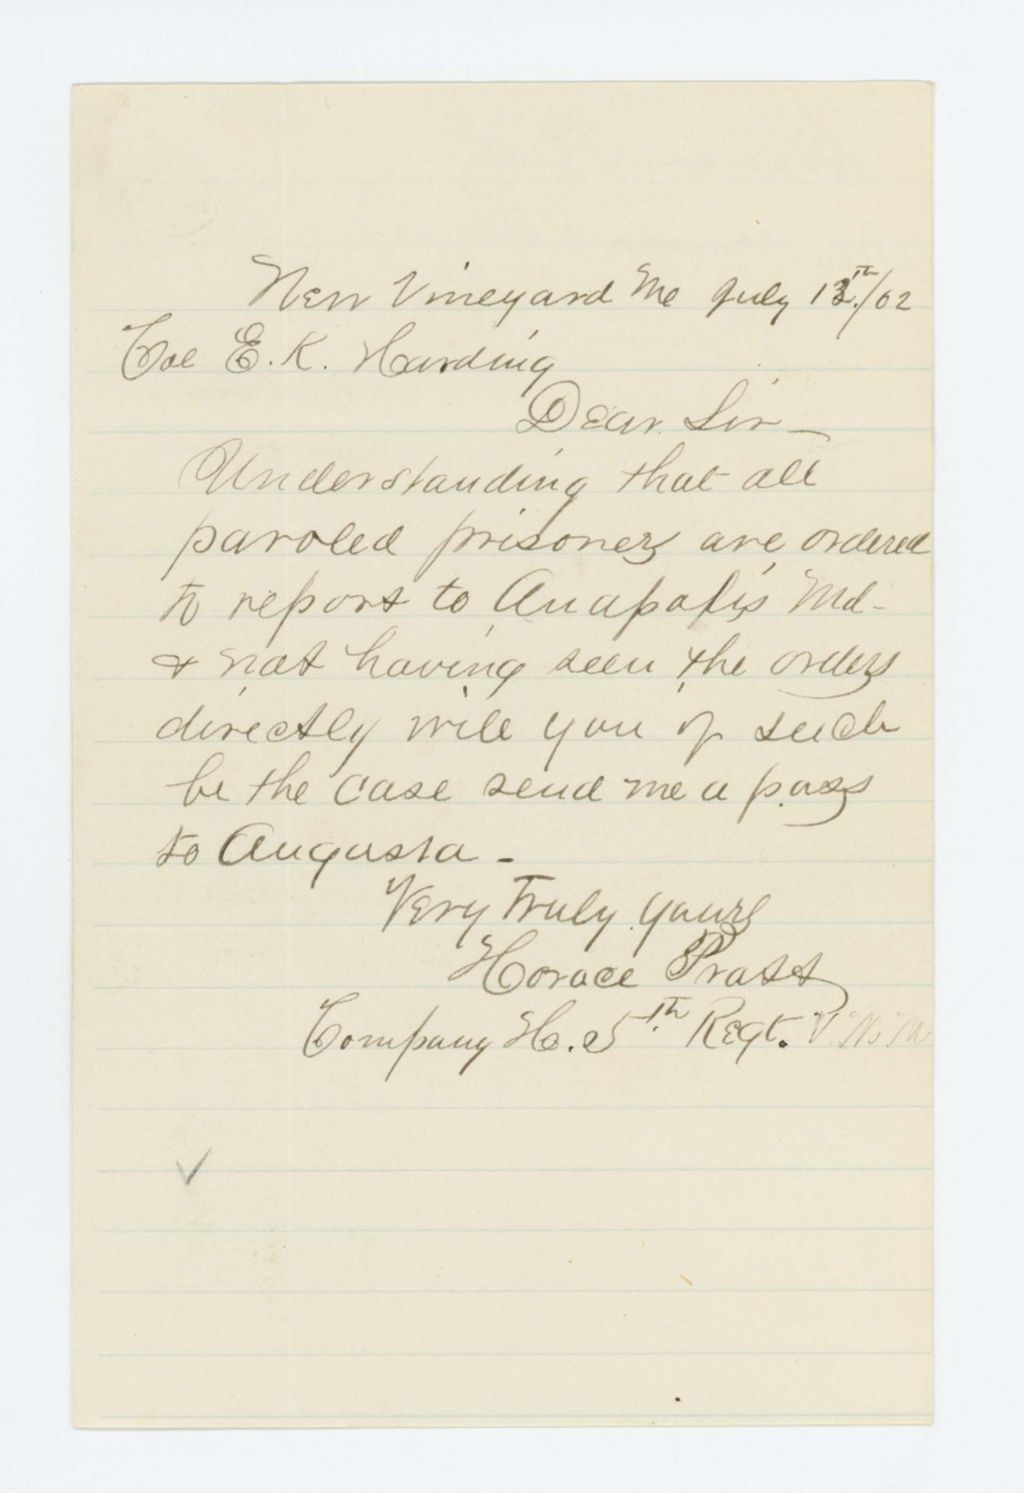 New Vineyard Me July 12th/62
Col E. K. Harding
Dear Sir —
Understanding that all
paroled prisoners are ordered
to report to Anapolis Md -
& not having seen the orders
directly will you if such
be the case send me a pass
to Augusta -
Very Truly Yours
Horace Pratt
Company H. 5th Regt.